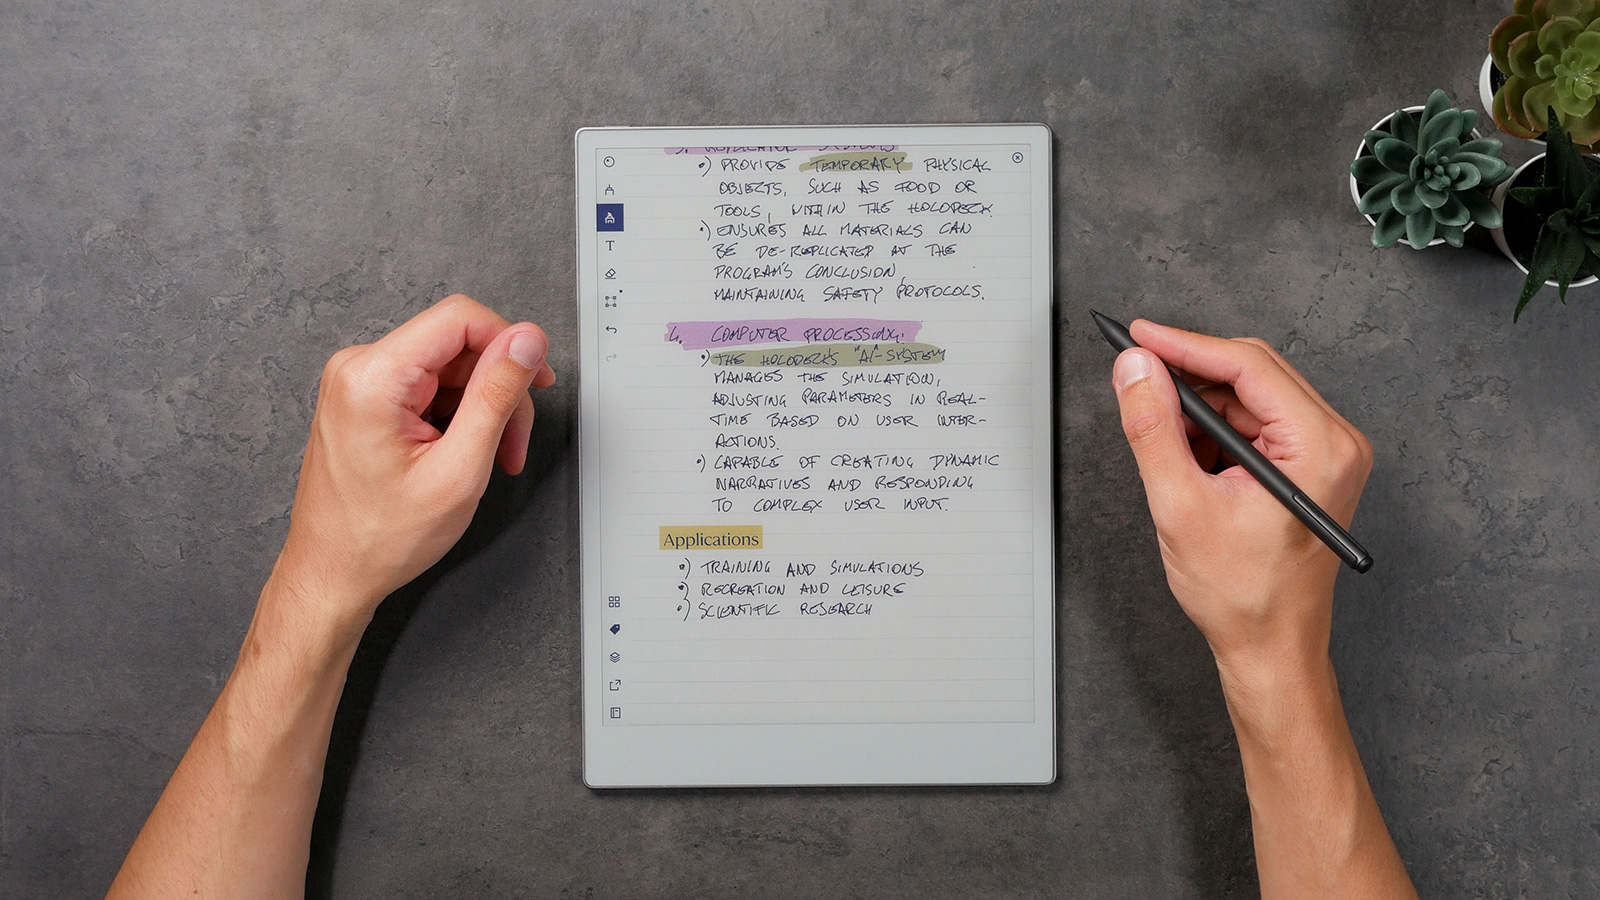 3. REPLICATOR SYSTEMS
•) PROVIDE TEMPORARY PHYSICAL
OBJECTS, SUCH AS FOOD OR
TOOLS, WITHIN THE HOLODECK.
•) ENSURES ALL MATERIALS CAN
BE DE-REPLICATED AT THE
PROGRAM'S CONCLUSION,
MAINTAINING SAFETY PROTOCOLS.
4. COMPUTER PROCESSING:
•) THE HOLODECK'S "AI"-SYSTEM
MANAGES THE SIMULATION,
ADJUSTING PARAMETERS IN REAL-
TIME BASED ON USER INTER-
ACTIONS.
•) CAPABLE OF CREATING DYNAMIC
NARRATIVES AND RESPONDING
TO COMPLEX USER INPUT.
Applications
•) TRAINING AND SIMULATIONS
•) RECREATION AND LEISURE
•) SCIENTIFIC RESEARCH